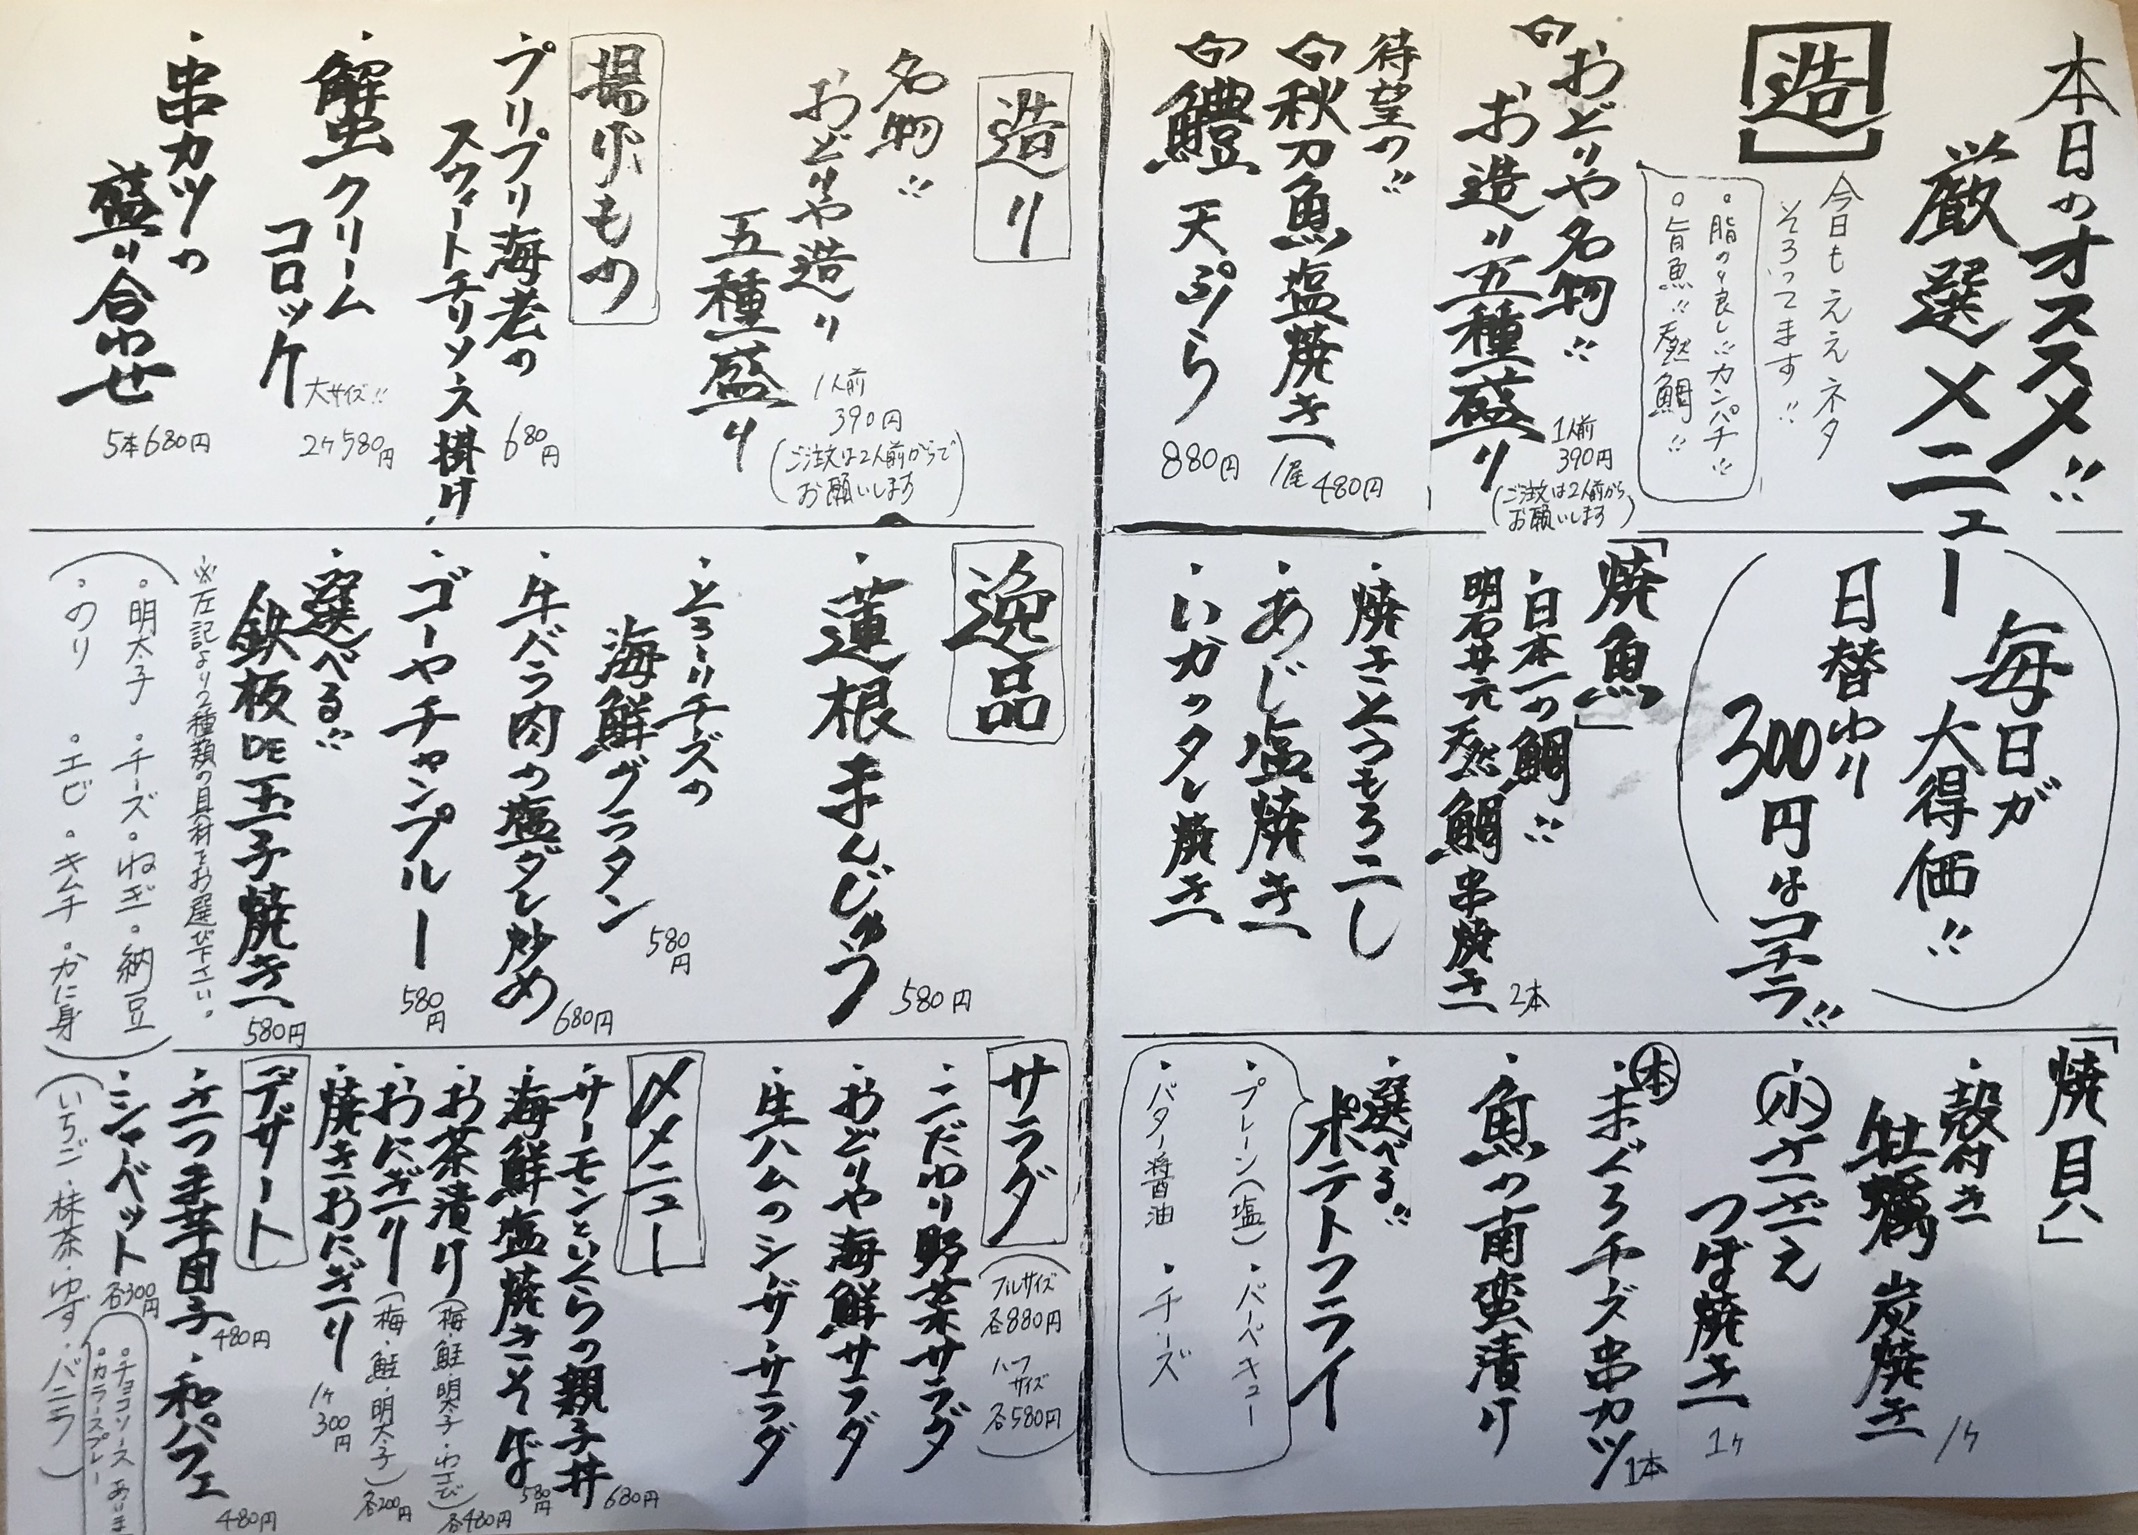 本日のオススメ!!
厳選メニュー
造
今日もええネタ
そろってます!!
・脂のり良し!!カンパチ!!
・旨魚!!天然鯛!!
おどりや名物!!
お造り五種盛り
1人前
390円
(ご注文は2人前から
お願いします)
待望の!!
秋刀魚塩焼き
1尾480円
鱧天ぷら
880円
毎日が
大得価!!
日替わり
300円はコチラ!!
「焼魚」
・日本一の鯛!!
明石井元天然鯛串焼き
2本
・焼きとうもろこし
・あじ塩焼き
・いかのタレ焼き
「焼貝」
・殻付き
牡蠣炭焼き
1ケ
・小さざえ
つぼ焼き
1ケ
・本まぐろチーズ串カツ
1本
・魚の南蛮漬け
・選べる!!
ポテトフライ
・プレーン(塩)・バーベキュー
・バター醤油・チーズ
造り
名物!!
おどりや造り
五種盛り
1人前
390円
(ご注文は2人前からで
お願いします)
揚げもの
・プリプリ海老の
スウィートチリソース掛け
680円
・蟹クリーム
コロッケ
大サイズ!!
2ケ580円
・串カツの
盛り合わせ
5本680円
逸品
・蓮根まんじゅう
580円
・とろ〜りチーズの
海鮮グラタン
580円
・牛バラ肉の塩ダレ炒め
680円
・ゴーヤチャンプルー
580円
・選べる!!
鉄板DE玉子焼き
580円
※左記より2種類の具材をお選び下さい。
(・明太子・チーズ・ねぎ・納豆
・のり・エビ・キムチ・かに身)
サラダ
(フルサイズ
各880円
ハーフ
サイズ
各580円)
・こだわり野菜サラダ
・おどりや海鮮サラダ
・生ハムのシーザーサラダ
〆メニュー
・サーモンといくらの親子丼
680円
・海鮮塩焼きそば
580円
・お茶漬け(梅・鮭・明太子・わさび)
各480円
・おにぎり(梅・鮭・明太子)
各200円
・焼きおにぎり
1ケ
300円
デザート
・さつま芋団子
480円
・和パフェ
480円
・シャーベット
各300円
(いちご・抹茶・ゆず・バニラ)
・チョコソース
・カラースプレー